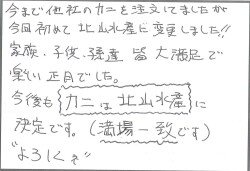 今まで他社のカニを注文してましたが
今回初めて北山水産に変更しました!!
家族・子供・孫達 皆大満足で
楽しい正月でした。
今後も カニは北山水産 に
決定です。(満場一致です)
"よろしくネ"